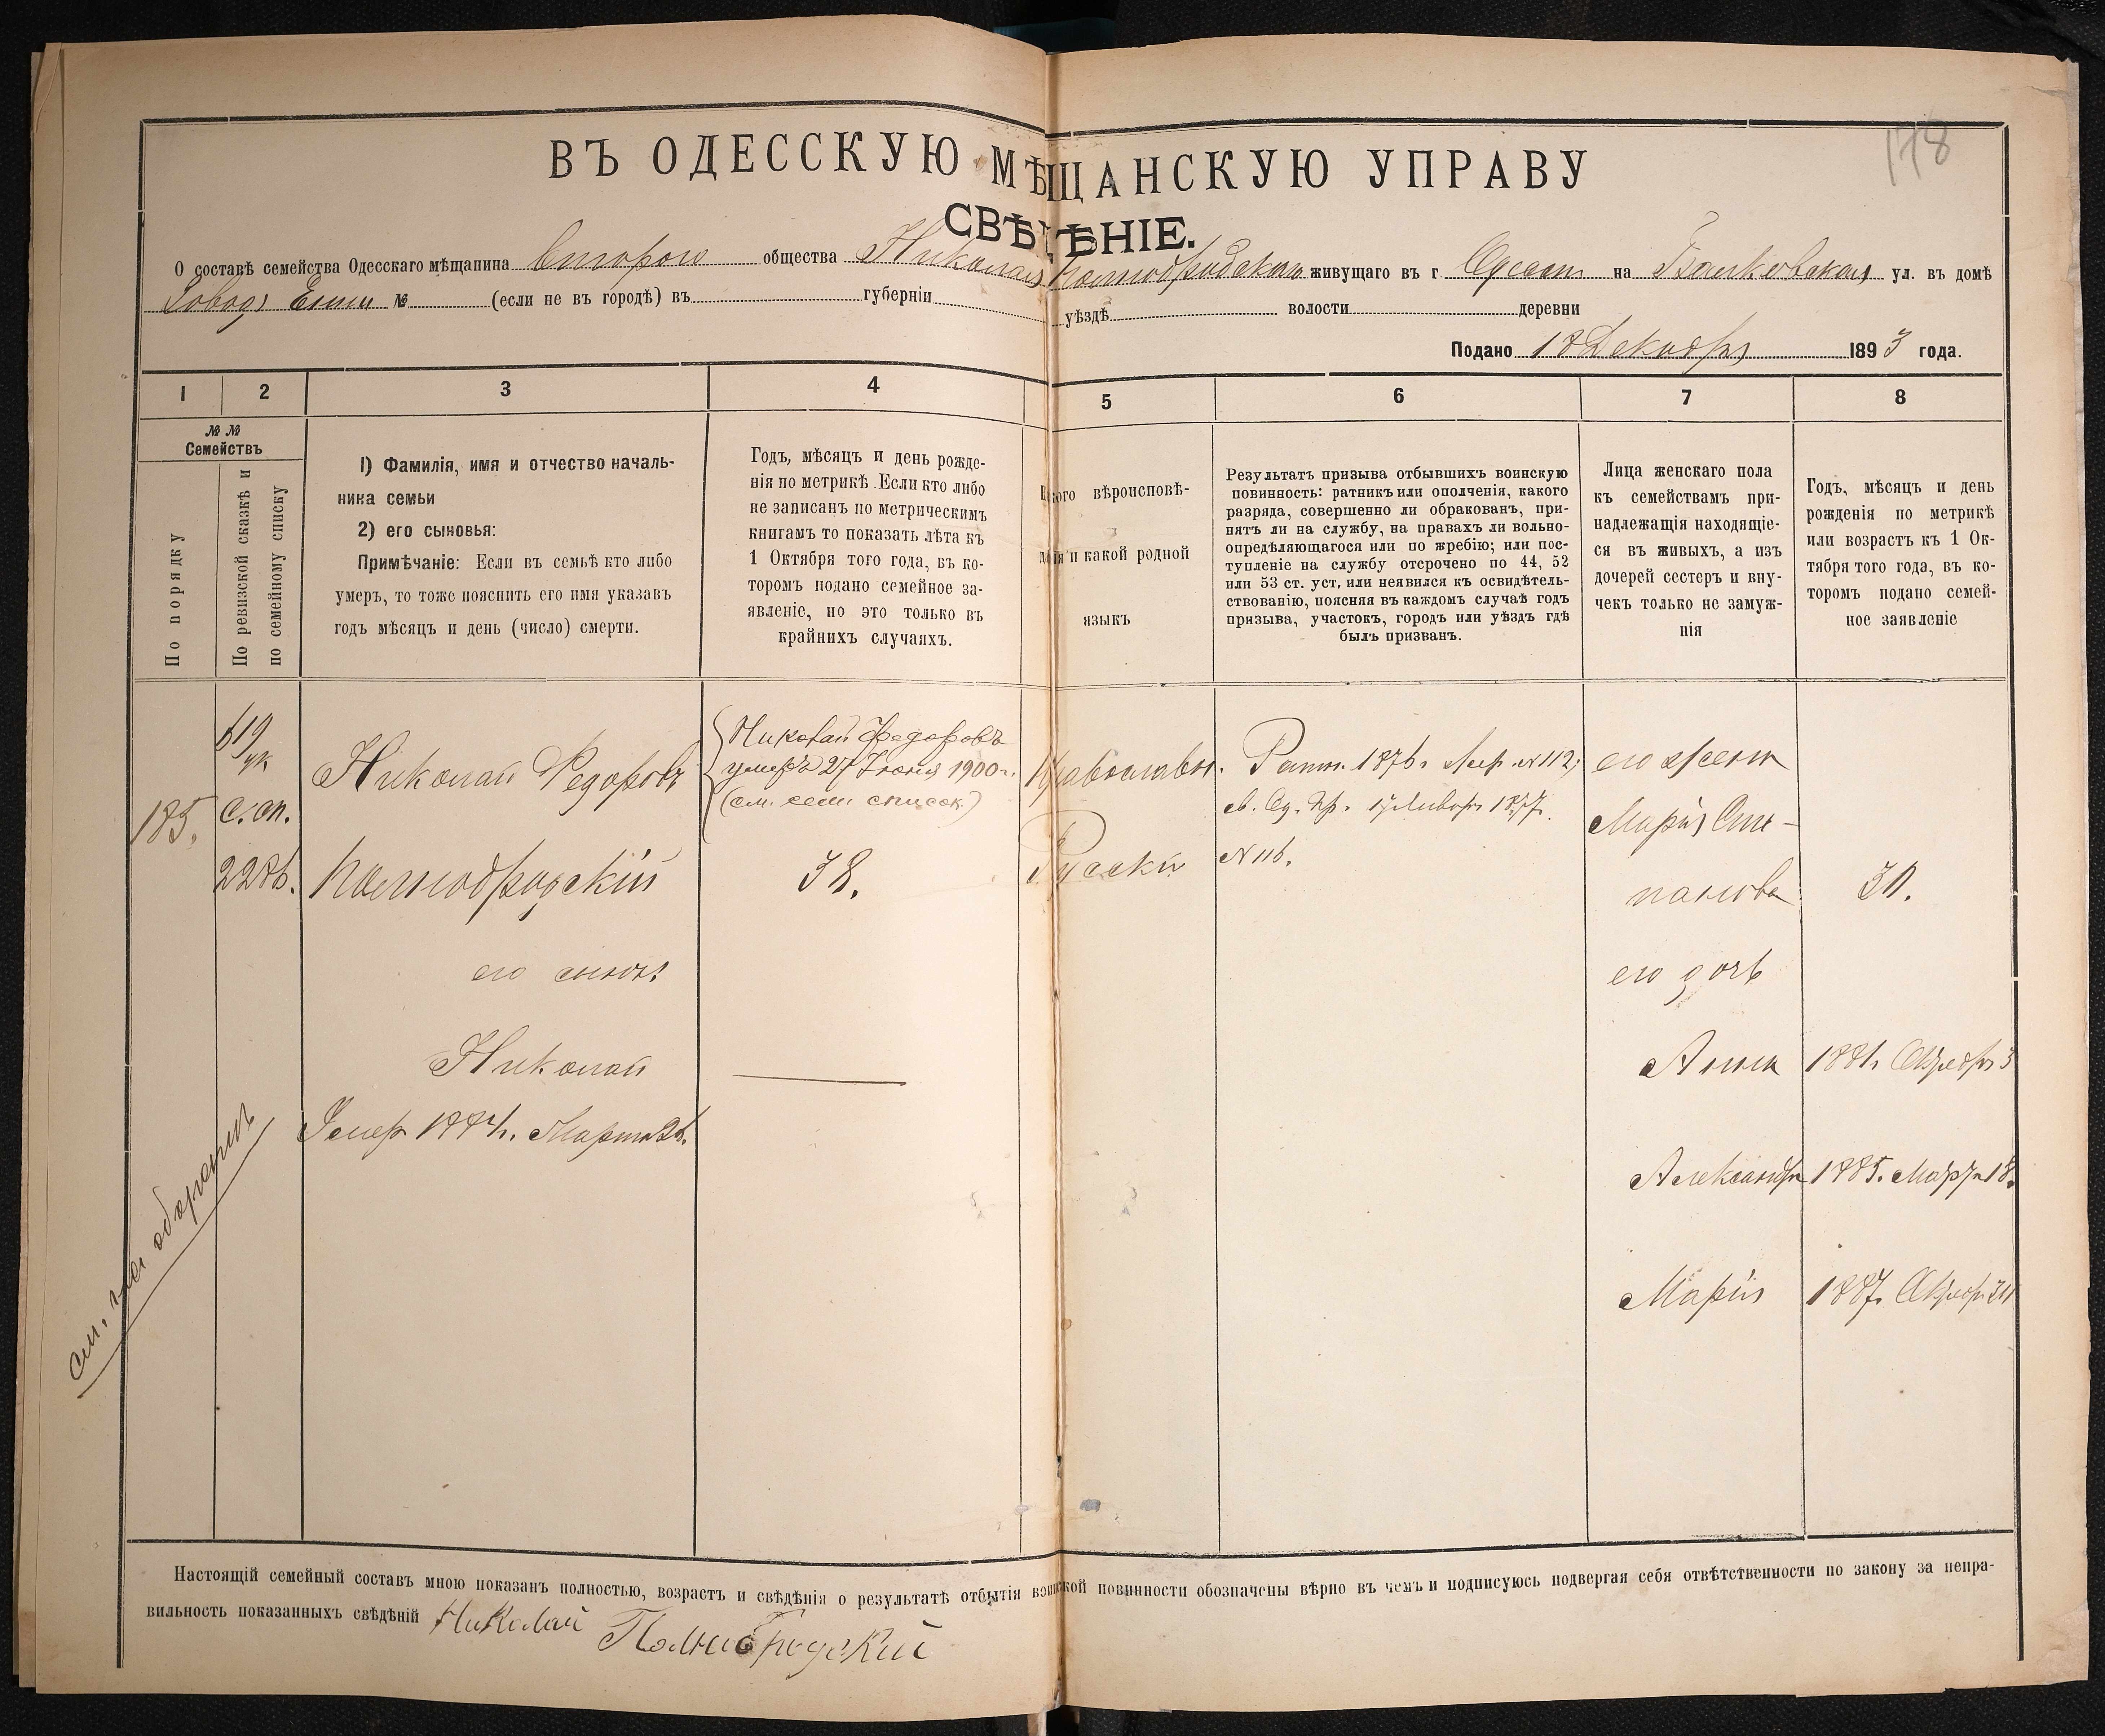 178
ВЪ ОДЕССКУЮ МѢЩАНСКУЮ УПРАВУ
СВѢДѢНІЕ.
О составѣ семейства Одесскаго мѣщанина Второго общества Николая живущаго въ г Одессѣ на ул. въ домѣ
№ (если не въ городѣ) въ губерніи уѣздѣ волости деревни
Подано 18 Декабря 1893 года.
1 2 3 4 5 6 7 8
№ №
Семействъ
По порядку
По ревизской сказкѣ и
по семейному списку
1) Фамилія, имя и отчество началь-
ника семьи
2) его сыновья:
Примѣчаніе: Если въ семьѣ кто либо
умеръ, то тоже пояснить его имя указавъ
годъ мѣсяцъ и день (число) смерти.
Годъ, мѣсяцъ и день рожде-
нія по метрикѣ. Если кто либо
не записанъ по метрическимъ
книгамъ то показать лѣта къ
1 Октября того года, въ ко-
торомъ подано семейное за-
явленіе, но это только въ
крайнихъ случаяхъ.
вѣроисповѣ-
и какой родной
языкъ
Результатъ призыва отбывшихъ воинскую
повинность: ратникъ или ополченія, какого
разряда, совершенно ли обракованъ, при-
нятъ ли на службу, на правахъ ли вольно-
опредѣляющагося или по жребію; или пос-
тупленіе на службу отсрочено по 44, 52
или 53 ст. уст, или неявился къ освидѣтель-
ствованію, поясняя въ каждомъ случаѣ годъ
призыва, участокъ, городъ или уѣздъ гдѣ
былъ призванъ.
Лица женскаго пола
къ семействамъ при-
надлежащія находящіе-
ся въ живыхъ, а изъ
дочерей сестеръ и вну-
чекъ только не замуж-
нія
Годъ, мѣсяцъ и день
рожденія по метрикѣ
или возрастъ къ 1 Ок-
тября того года, въ ко-
торомъ подано семей-
ное заявленіе
185.
с. сп.
228
Николай Федоровъ
его сынъ
Николай
Умер Марта
Николай Федоровъ
умеръ 27 Іюня 1900 г.
(см. сем. список)
38.
Православн.
Русскій
Ратн. 1876 г № 112;
1877.
№ 116.
его жена
Марія Сте-
панова
30.
его дочь
Анна
Александра 1885. Марта 18.
Марія 1887.
см. на оборотѣ
Настоящій семейный составъ мною показанъ полностью, возрастъ и свѣдѣнія о результатѣ отбытія воинской повинности обозначены вѣрно въ чемъ и подписуюсь подвергая себя отвѣтственности по закону за непра-
вильность показанныхъ свѣдѣній Николай